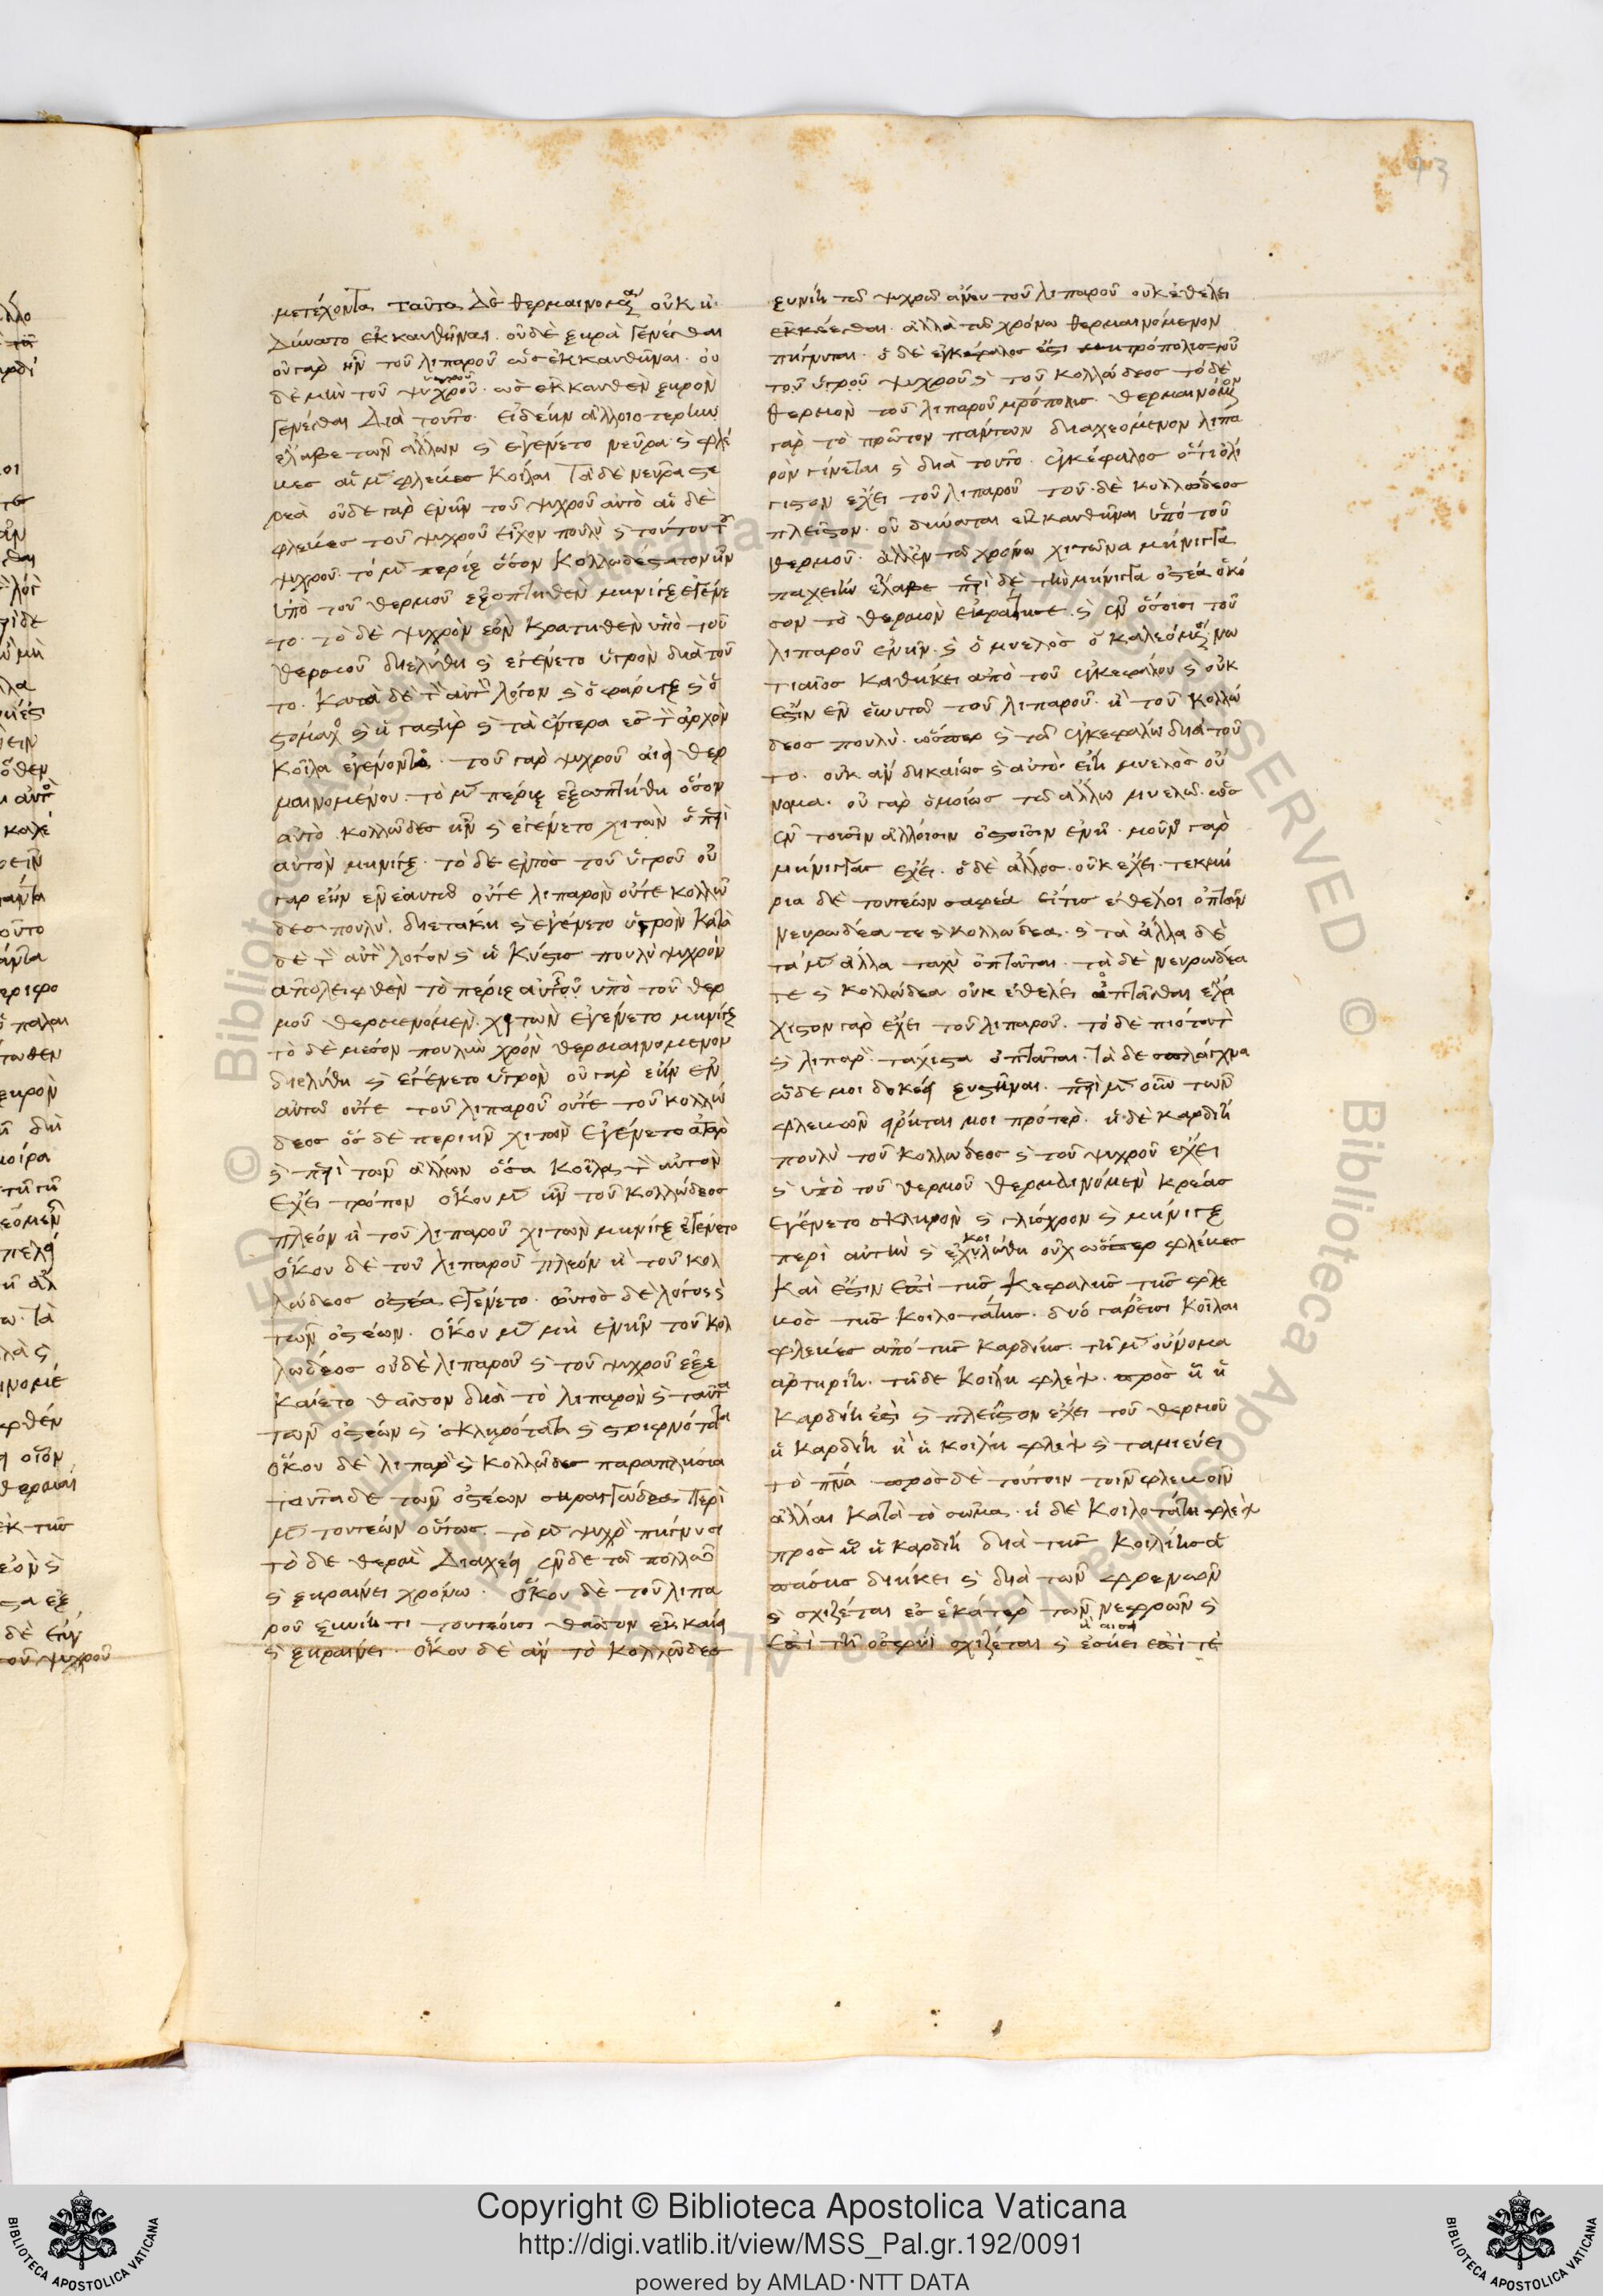 μετέχοντα ταῦτα δὲ θερμαινομ οὐκ ἠ
δύνατο ἐκκαυθῆναι. οὐδὲ ξηρὰ γενέσθαι
οὐ γαρ ἦν τοῦ λιπαροῦ ὥς ἐκκαυθῆναι. οὐ
δὲ μὴν τοῦ ψυχροῦ. ὡς ἐκκαυθὲν ξηρὸν
γενέσθαι διὰ τοῦτο. εἰδέην ἀλλοιοτέρην
ἔλαβε τῶν ἄλλων ϛ ἐγένετο νεῦρα ϛ φλέ
βες αἱ μ φλέβες κοῖλαι τὰ δὲ νεῦρα στε
ρεὰ οὐδὲ γὰρ ἐνῆν τοῦ ψυχροῦ αὐτὸ αἱ δὲ
φλέβες τοῦ ψυχροῦ εἶχον πουλὺ ϛ τούτου τ
ψυχροῦ. τὸ μ πέριξ ὅσον κολλωδέστατον ἦν
ὑπὸ τοῦ θερμοῦ ἐξοπτηθὲν μῆνιγξ ἐγένε
το. τὸ δὲ ψυχρὸν ἐὸν κρατηθὲν ὑπὸ τοῦ
θερμοῦ διελύθη ϛ ἐγένετο ὑγρὸν διὰ τοῦ
το. κατὰ δὲ τ αὐτ λόγον ϛ ὁ φάρυγξ ϛ ὁ
στόμαχ ϛ ἡ γαστὴρ ϛ τὰ ἔντερα ἐς τ ἀρχὸν
κοῖλα ἐγένοντο. τοῦ γαρ ψυχροῦ αἰεὶ θερ
μαινομένου. τὸ μ πέριξ ἐξωπτήθη ὅσον
αὐτὸ κολλῶδες ἦν ϛ ἐγένετο χιτὼν ὁ περὶ
αὐτὸν μῆνιγξ. τὸ δὲ ἐντὸς τοῦ ὑγροῦ οὐ
γαρ ἐῆν ἐν ἑαυτῶ οὔτε λιπαρὸν οὔτε κολλῶ
δες πουλὺ. διετάκη ϛ ἐγένετο ὑγρὸν κατὰ
δὲ τ αὐτ λόγον ϛ ἡ κύστις πουλὺ ψυχρὸν
ἀπολειφθὲν τὸ πέριξ αὐτοῦ ὑπὸ τοῦ θερ
μοῦ θερμενόμεν χιτὼν ἐγένετο μῆνιγξ
τὸ δὲ μέσον πουλὺ χρὸν θερμαινόμενον
διελύθη ϛ ἐγένετο ὑγρὸν οὐ γαρ ἐῆν ἐν
αὐτῶ οὔτε τοῦ λιπαροῦ οὔτε τοῦ κολλώ
δεος ὃς δὲ περιῆν χιτὼν ἐγένετο ἀτὰρ
ϛ περὶ τῶν ἄλλων ὅσα κοῖλα τ αὐτὸν
ἔχει τρόπον ὅκου μ ἦν τοῦ κολλώδεος
πλέον ἢ τοῦ λιπαροῦ χιτὼν μῆνιγξ ἐγένετο
ὅκου δὲ τοῦ λιπαροῦ πλέον ἢ τοῦ κολ
λώδεος ὀστέα ἐγένετο. ὡυτὸς δὲ λόγος ϛ
τῶν ὀστέων. ὅκου μ μὴ ἐνῆν τοῦ κολ
λώδεος οὐδὲ λιπαροῦ ϛ τοῦ ψυχροῦ ἐξε
καίετο θᾶσσον διὰ τὸ λιπαρὸν ϛ ταῦτα
τῶν ὀστέων ϛ σκληρότατα ϛ στριφνότατα
ὅκου δὲ λιπαρ ϛ κολλῶδες παραπλήσια
ταῦτα δὲ τῶν ὀστέων σηραγγώδεα περὶ
μ τουτέων οὕτως. τὸ μ ψυχρ πήγνυσι
τὸ δὲ θερμ διαχέει ἐν δὲ τῶ πολλῶ
ϛ ξηραίνει χρόνω. ὅκου δὲ τοῦ λιπα
ροῦ ξυνίη τι τουτέοισι θᾶσσον ἐκκαίει
ϛ ξηραίνει. ὅκου δὲ ἂν τὸ κολλῶδες
ξυνίη τῶ ψυχρῶ ἄνευ τοῦ λιπαροῦ οὐκ ἐθέλει
ἐκκέεσθαι. ἀλλὰ τῶ χρόνω θερμαινόμενον
πήγνυται. ὁ δὲ ἐγκέφαλος ἐστι μητρόπολις τοῦ
τοῦ ὑγροῦ ψυχροῦ ϛ τοῦ κολλώδεος τὸ δὲ
θερμὸν τοῦ λιπαροῦ μρόπολις. θερμαινόμ
γαρ τὸ πρῶτον πάντων διαχεόμενον λιπα
ρὸν γίνεται ϛ διὰ τοῦτο. ἐγκέφαλος ὅτι ὀλί
γιστον ἔχει τοῦ λιπαροῦ τοῦ δὲ κολλώδεος
πλεῖστον. οὐ δύναται ἐκκαυθῆναι ὑπὸ τοῦ
θερμοῦ. ἀλλ ἐν τῶ χρόνω χιτῶνα μήνιγγα
παχείην ἔλαβε περὶ δὲ τὴν μήνιγγα ὀστέα ὁκό
σον τὸ θερμὸν ἐκράτησε. ϛ ἐν ὅσοισι τοῦ
λιπαροῦ ἐνῆν. ϛ ὁ μυελὸς ὁ καλεόμ νω
τιαῖος καθήκει ἀπὸ τοῦ ἐγκεφάλου ϛ οὐκ
ἔστιν ἐν ἑωυτῶ τοῦ λιπαροῦ. ἢ τοῦ κολλώ
δεος πουλὺ. ὥσπερ ϛ τῶ ἐγκεφάλω διὰ τοῦ
το. οὐκ ἂν δικαίως ϛ αὐτὸς εἴη μυελὸς οὔ
νομα. οὐ γαρ ὁμοίως τῶ ἄλλω μυελῶ. ὡς
ἐν τοισιν ἀλλοισιν ὀστοῖσιν ἐνῆ. μοῦν γαρ
μήνιγγας ἔχει. ὁ δὲ ἄλλος. οὐκ ἔχει. τεκμή
ρια δὲ τουτέων σαφέα εἴ τις ἐθέλοι ὀπτᾶν
νευρωδέα τε ϛ κολλωδέα. ϛ τὰ ἄλλα δὲ
τὰ μ ἄλλα ταχὺ ὀπτᾶται. τὰ δὲ νευρώδεα
τε ϛ κολλώδεα οὐκ ἐθέλει ὀπτᾶσθαι ἐλά
χιστον γαρ ἔχει τοῦ λιπαροῦ. τὸ δὲ πιότατ
ϛ λιπαρ. τάχιστα ὀπτᾶται. τὰ δὲ σπλάγχνα
ὧδε μοι δοκέει ξυστῆναι. περὶ μ οὖν τῶν
φλεβῶν εἴρηται μοι πρότερ. ἡ δὲ καρδίη
πουλὺ τοῦ κολλώδεος ϛ τοῦ ψυχροῦ ἔχει
ϛ ὑπὸ τοῦ θερμοῦ θερμαινόμεν κρέας
ἐγένετο σκληρὸν ϛ γλίσχρον ϛ μῆνιγξ
περὶ αὐτὴν ϛ ἐχυλώθη οὐχ ὥσπερ φλέβες
καὶ ἔστιν ἐπὶ τῆς κεφαλῆς τῆς φλε
βὸς τῆς κοιλοτάτης. δύο γάρ εἰσι κοῖλαι
φλέβες ἀπὸ τῆς καρδίης. τῆ μ οὔνομα
ἀρτηρίη. τῆ δὲ κοίλη φλέψ. πρὸς ἧ ἡ
καρδίη ἐστὶ ϛ πλεῖστον ἔχει τοῦ θερμοῦ
ἡ καρδίη ἢ ἡ κοίλη φλεψ ϛ ταμιεύει
τὸ πνα. πρὸς δὲ τούτοιν τοῖν φλεβοῖν
ἄλλαι κατὰ τὸ σῶμα. ἡ δὲ κοιλοτάτη φλεψ
πρὸς ἧ ἡ καρδίη διὰ τῆς κοιλίης ἁ
πάσης διήκει ϛ διὰ τῶν φρενῶν
ϛ σχίζεται ἐς ἑκάτερ τῶν νεφρῶν ϛ
ἐπὶ τῆ ὀσφύϊ σχίζεται ϛ ἐσήει ἐπὶ τε